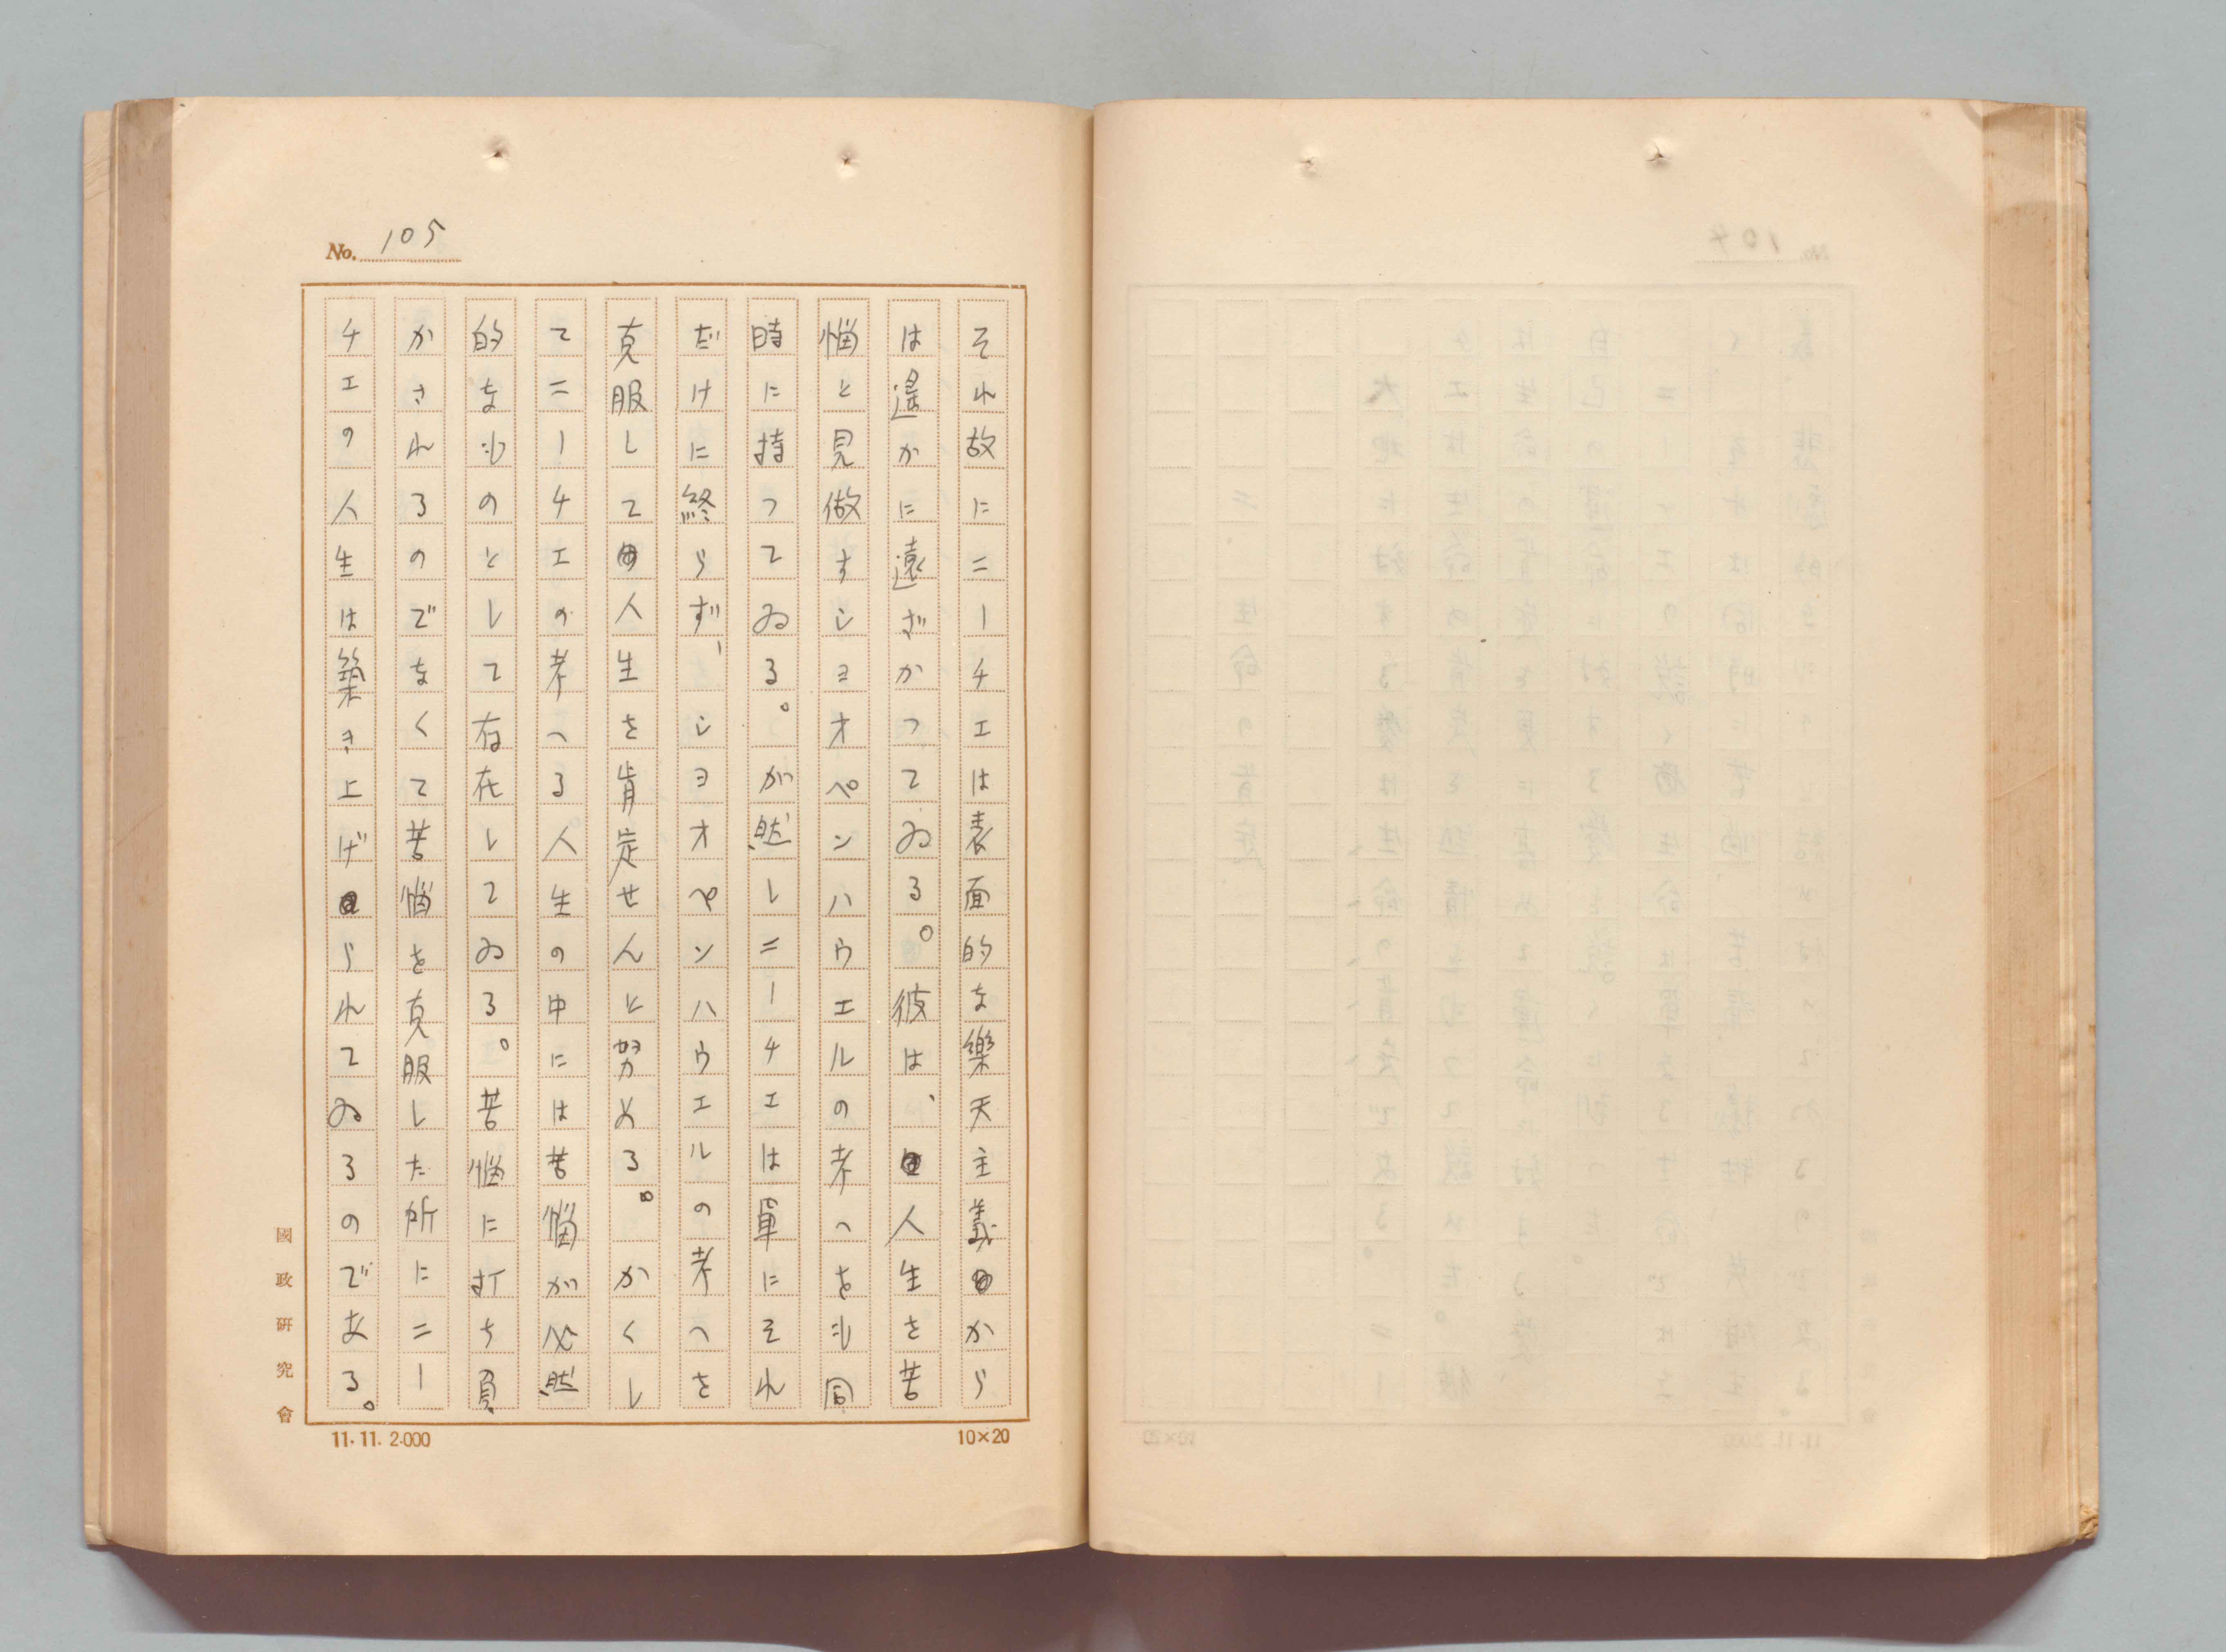 No. 105
それ故にニーチエは表面的な樂天主義から
は遙かに遠ざかつてゐる。彼は、人生を苦
悩と見做すシヨオペンハウエルの考へをも同
時に持つてゐる。が然しニーチエは單にそれ
だけに終らず、シヨオペンハウエルの考へを
克服して人生を肯定せんと努める。かくし
てニーチエの考へる人生の中には苦悩が必然
的なものとして存在してゐる。苦悩に打ち負
かされるのでなくて苦悩を克服した所にニー
チエの人生は築き上げられてゐるのである。
國政研究會
11.11.2.000
10×20